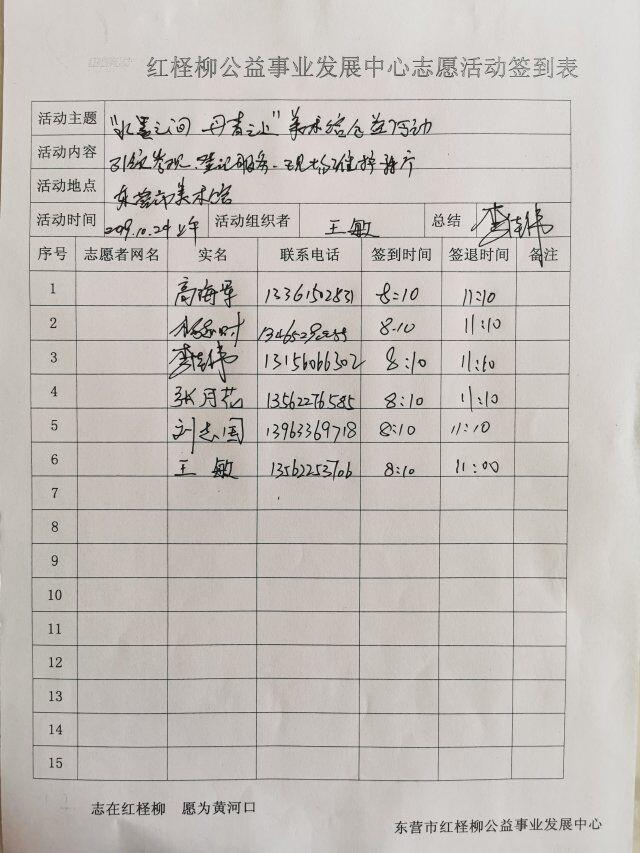 红柽柳公益事业发展中心志愿活动签到表
活动主题 "水墨之间 丹青之上" 美术馆公益活动
活动内容 引领参观、登记服务、现场维护秩序
活动地点 东营市美术馆
活动时间 2019.10.24上午 活动组织者 王敏 总结 李志伟
序号 志愿者网名 实名 联系电话 签到时间 签退时间 备注
1 高海军 13361502831 8:10 11:10
2 8:10 11:10
3 李志伟 13156066302 8:10 11:10
4 张月花 13562276585 8:10 11:10
5 刘志国 13963369718 8:10 11:10
6 王敏 13562253706 8:10 11:00
7
8
9
10
11
12
13
14
15
志在红柽柳 愿为黄河口
东营市红柽柳公益事业发展中心